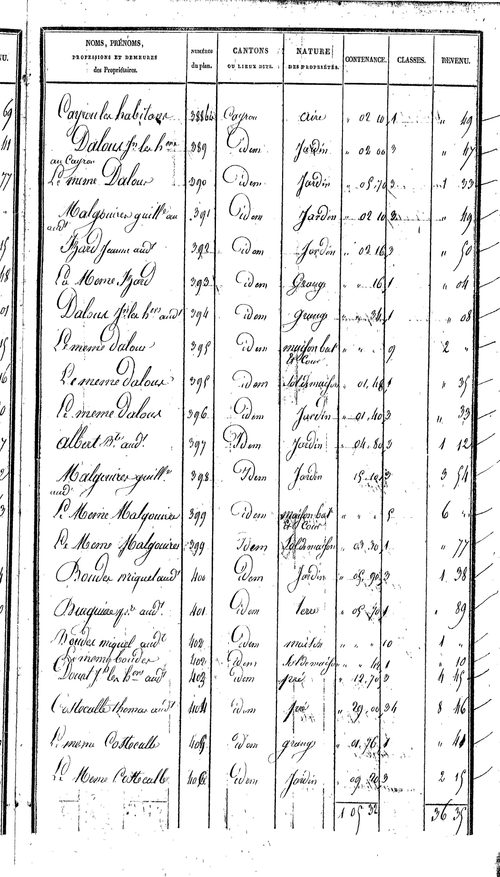 NOMS, PRÉNOMS, PROFESSIONS ET DEMEURES des Propriétaires. NUMÉROS du plan. CANTONS OU LIEUX DITS. NATURE DES PROPRIÉTÉS. CONTENANCE. CLASSES. REVENU.
Cayrou les habitans 388 bis Cayrou aire " 02 10 1 " 49
Dalous les h 389 idem Jardin " 02 00 3 " 47
au Cayrou
Le meme Dalous 390 idem Jardin " 05 70 3 1 33
Malgouires guill 391 idem Jardin " 02 10 3 " 49
audt
Izard Jeanne audt 392 idem Jardin " 02 16 3 " 50
La Meme Izard 393 idem Grange " " 16 1 " 04
Dalous les hers audt 394 idem grange " " 34 1 " 08
Le meme Dalous 395 idem maison bat " " " 9 2 "
et Cour
Le meme dalous 395 idem Sol de maison " 01 48 1 " 35
Le meme dalous 396 idem Jardin " 01 40 3 " 33
albert audt 397 Idem Jardin " 04 80 3 1 12
Malgouires guill 398 Idem Jardin 15 10 3 3 54
audt
Le Meme Malgouires 399 idem maison bat " " " 5 6 "
et Cour
Le Meme Malgouires 399 Idem Sol de maison " 03 30 1 " 77
Boudes miquel audt 400 idem Jardin " 05 90 3 1 38
audt 401 idem terre " 05 70 1 " 89
Boudes miquel audt 402 idem " " " 10 1 "
Le meme boudes 402 idem Sol de maison " " 44 1 " 10
les hers audt 403 idem pré " 12 70 3 4 45
Costecalle thomas audt 404 idem pré " 29 00 34 8 46
Le meme Costecalle 405 idem grange " 01 76 1 " 41
Le Meme Costecalle 406 idem Jardin " 09 20 3 2 15
1 05 32 36 35